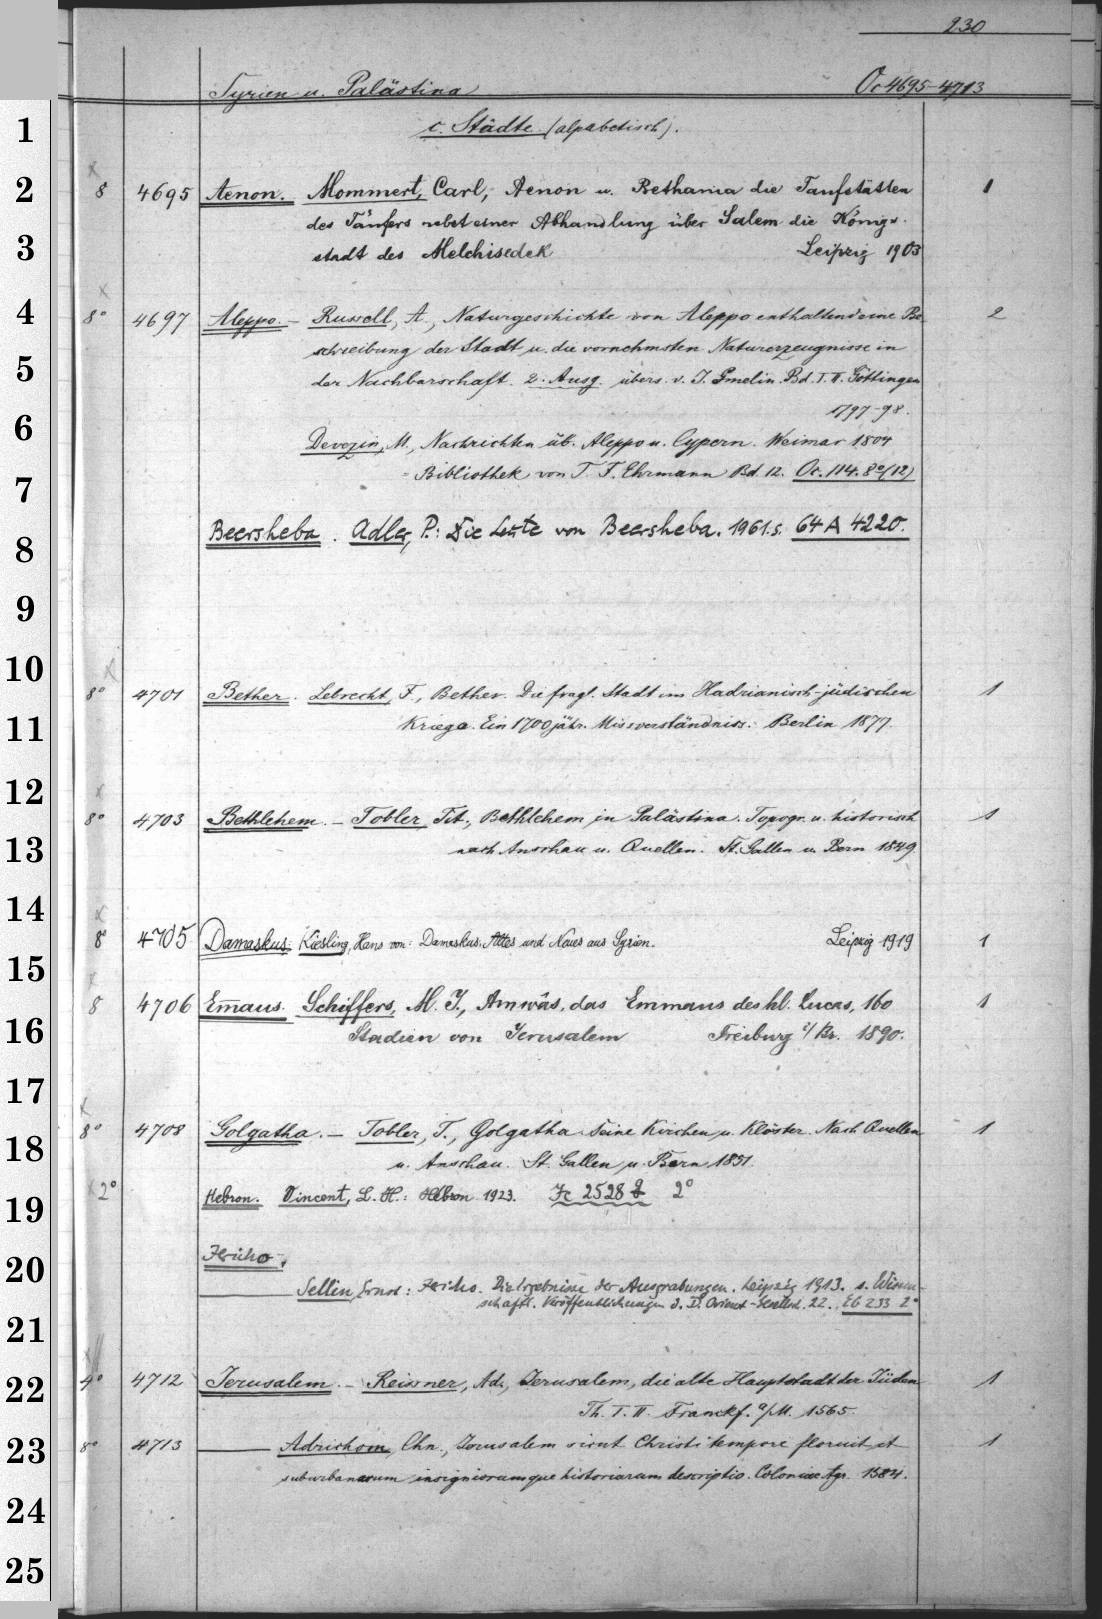 230
Syrien u. Palästina Oc 4695-4713
1
c. Städte (alphabetisch).
2
8 4695 Aenon. Mommert, Carl, Aenon u. Bethania die Taufstätten 1
des Täufers nebst einer Abhandlung über Salem die Königs-
3
stadt des Melchisedek Leipzig 1903
4
8° 4697 Aleppo. – Russell, A., Naturgeschichte von Aleppo enthaltend eine Be 2
schreibung der Stadt u. die vornehmsten Naturerzeugnisse in
5
der Nachbarschaft. 2. Ausg. übers. v. J. Gmelin. Bd. I. II. Göttingen
1797-98.
6
Devezin, M., Nachrichten üb. Aleppo u. Cypern. Weimar 1804
= Bibliothek von T. F. Ehrmann Bd. 12. Oc. 114. 8° (12)
7
Beersheba. Adler, P.: Die Leute von Beersheba. 1961. s. 64 A 4220.
8
9
10
8° 4701 Bether. Lebrecht, F., Bether. Die fragl. Stadt im Hadrianisch-jüdischen 1
11
Kriege. Ein 1700 jähr. Missverständniss. Berlin 1877.
12
8° 4703 Bethlehem. – Tobler, Tit., Bethlehem in Palästina. Topogr. u. historisch 1
13
nach Anschau u. Quellen. St. Gallen u. Bern 1849
14
8° 4705 Damaskus: Kiesling, Hans von: Damaskus. Altes und Neues aus Syrien. Leipzig 1919 1
15
8 4706 Emaus. Schiffers, M. J., Amwâs, das Emmaus des hl. Lucas, 160 1
16
Stadien von Jerusalem Freiburg i/Br. 1890.
17
8° 4708 Golgatha. – Tobler, T., Golgatha. Seine Kirchen u. Klöster. Nach Quellen 1
18
u. Anschau. St. Gallen u. Bern 1851.
2° Hebron. Vincent, L. H.: Hébron 1923. Fc 2528 2°
19
Jericho.
20
Sellin, Ernst: Jericho. Die Ergebnisse der Ausgrabungen. Leipzig 1913. s. Wissen-
schaftl. Veröffentlichungen d. D. Orient-Gesellsch. 22. Eb 233 2°
21
4° 4712 Jerusalem. – Reissner, Ad., Jerusalem, die alte Hauptstadt der Jüden 1
22
Th. I. II. Franckf. a/M. 1565.
23
8° 4713 Adrichom, Chn., Jerusalem sicut Christi tempore floruit et 1
suburbanarum insigniorumque historiarum descriptio. Coloniae Agr. 1584.
24
25